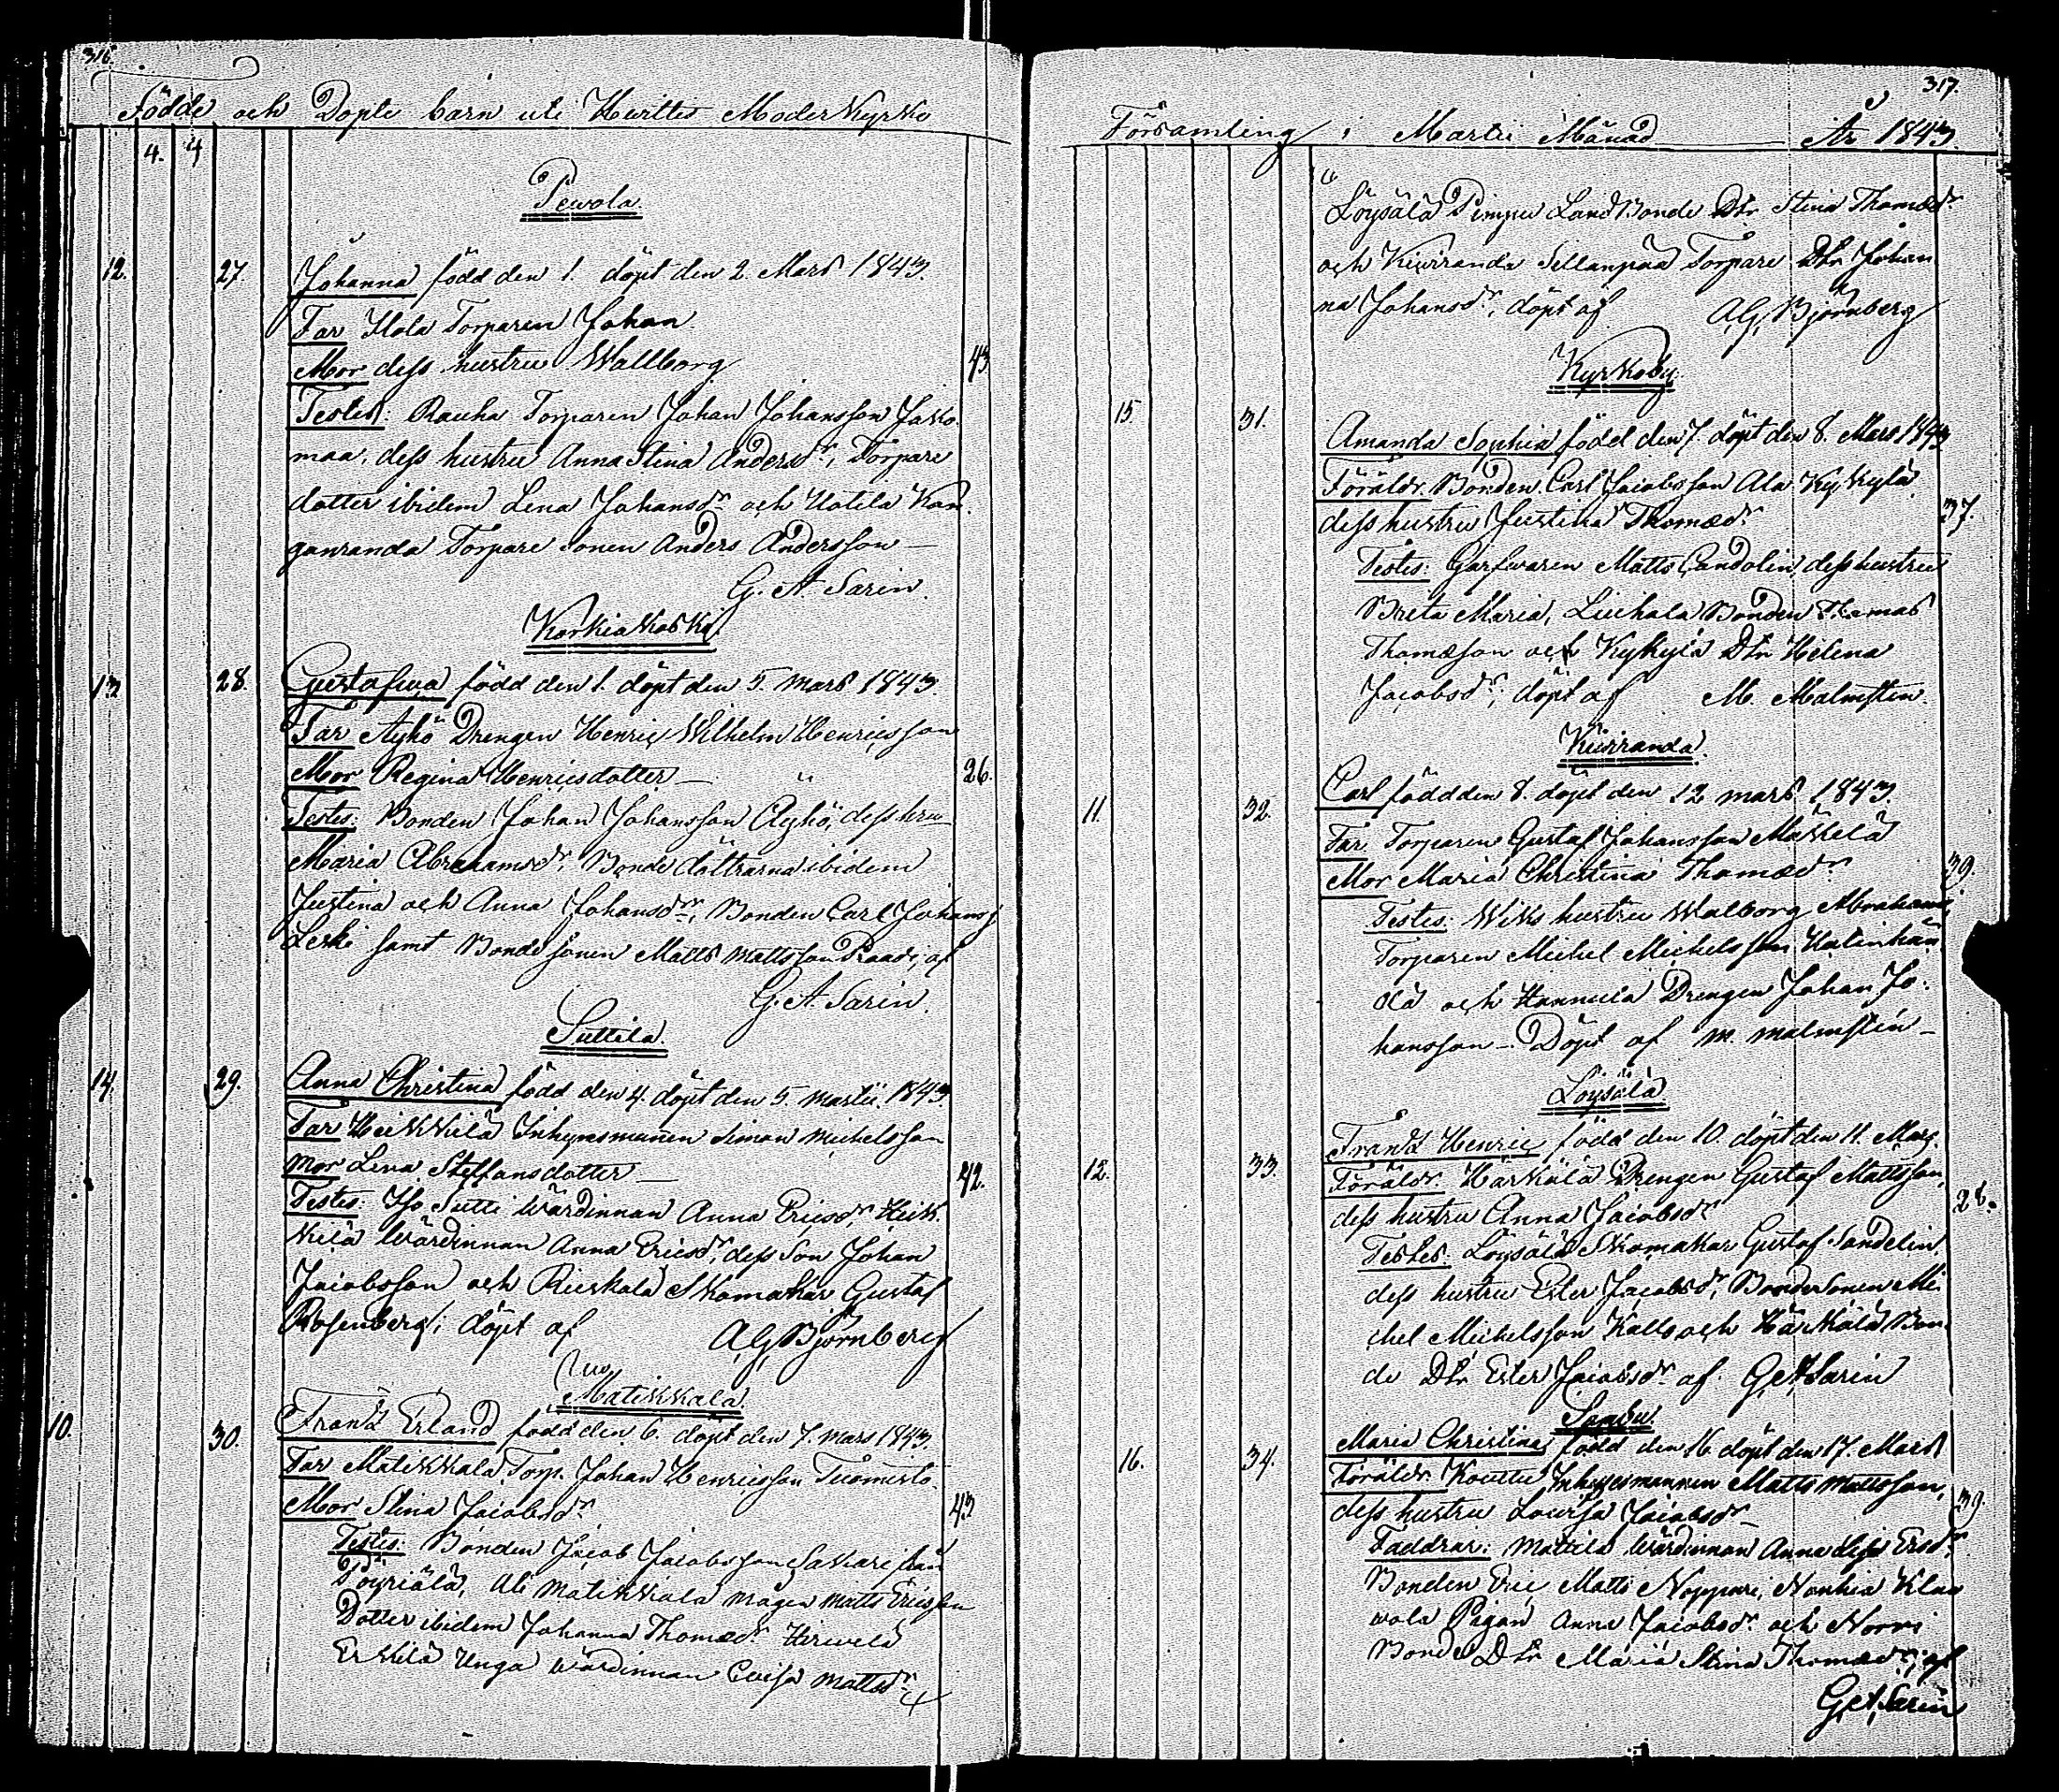 316.
Födde och Döpte barn uti Huittis Moder Kyrko
4. 4
Pewola.
12. 27. Johanna född den 1. döpt den 2. Mars 1843.
Far Uola Torparen Johan.
Mor dess hustru Wallborg
43
Testes: Rauha Torparen Johan Johansson Jako
maa, dess hustru Anna Stina Andersdr, Torpare
dotter ibidem Lena Johansdr och Uotila Kan
ganranda Torpare sonen Anders Andersson
G. A. Sarin.
Korkiakoski
13. 28. Gustafwa född den 1. döpt den 5. mars 1843.
Far Äyhö Drengen Henric Wilhelm Henricsson
Mor Regina Henricsdotter
26.
Testes: Bonden Johan Johansson Äyhö, dess hru
Maria Abrahamsdr, Bonde döttrarna ibidem
Justina och Anna Johansdr, Bonden Carl Johanss
Leski samt Bonde sonen Matts Mattsson Raadi, af
G. A. Sarin.
Suttila.
14. 29. Anna Christina född den 4. döpt den 5. martii 1843.
Far Heikkilä Inhysesmannen Simon Michelsson
Mor Lena Steffansdotter
42.
Testes: Iso Sutti Wärdinnan Anna Ericsdr, Heik
kilä Wärdinnan Anna Ericsdr, dess Son Johan
Jacobsson och Rieskala Skomakar Gustaf
Rosenberg; döpt af A.G. Björnberg
Matikkala.
10. 30. Frans Erland född den 6. döpt den 7. mars 1843.
Far Matikkala Torp. Johan Henricsson Tuomisto
Mor Stina Jacobsdr
43
Testes: Bonden Jacob Jacobsson Sakari från
Pöyriälä, Ali Matikkala mågen Matts Ericsson
Dotter ibidem Johanna Thomædr. Hirwelä
Erkkilä Unga wärdinnan Lovisa Mattsdr
317.
Församling i Martii Månad År 1843.
Löysälä Pimpu LandBonde Dtr Stina Thomædr
och Kiwiranda Sillanpää Torpare Dtr Johan
na Johansdr, döpt af A.G. Björnberg
Kyrkoby.
15. 31. Amanda Sophia född den 7. döpt den 8. Mars 1843
Föräldr. Bonden Carl Jacobsson Ala Kykylä
dess hustru Justina Thomædr
37.
Testes: Garfwaren Matts Candolin, dess hustru
Breta Maria, Liuhala Bonden Thomas
Thomæson och Kykylä Dtr Helena
Jacobsdr; döpt af M. Malmsten.
Kiwiranda.
11. 32. Carl född den 8. döpt den 12 mars 1843.
Far Torparen Gustaf Johansson Mäkelä
Mor Maria Christina Thomædr
39.
Testes: Wiks hustru Walborg Abrahams
Torparen Michel Michelsson
och Hannula Drengen Johan Jo-
hansson - Döpt af M. Malmsten -
Löysälä.
12. 33. Frans Henric född den 10. döpt den 11. Mars
Föräldr. Härkälä Drengen Gustaf Mattsson,
dess hustru Anna Jacobsdr
28.
Testes: Löysälä Skomakar Gustaf Sandelin,
dess hustru Ester Jacobsdr, Bonde Sonen Mi
chel Michelsson Kallo och Härkälä Bon
de Dtr Ester Jacobsdr af G.A. Sarin
Sambu
16. 34. Maria Christina född den 16 döpt den 17. Mars
Föräldr. Kouttu Inhysesmannen Matts Mattsson,
dess hustru Lovisa Jacobsdr
39.
Faddrar: Mattila Wärdinnan Anna Lisa Ersdr
Bonden Eric Matts. Noppari, Nankia Klau
wola Pigan Anna Jacobsdr och Norri
Bonde Dtr Maria Stina Thomædr, af
G.A. Sarin